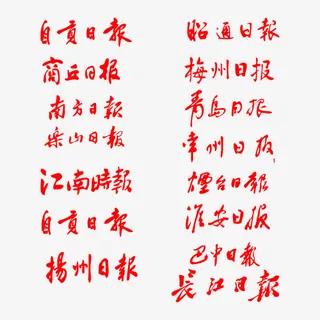 自贡日報
商丘日报
南方日報
乐山日報
江南時報
自贡日報
揚州日報
昭通日報
梅州日报
青岛日报
常州日报
煙台日報
淮安日报
巴中日報
長江日報